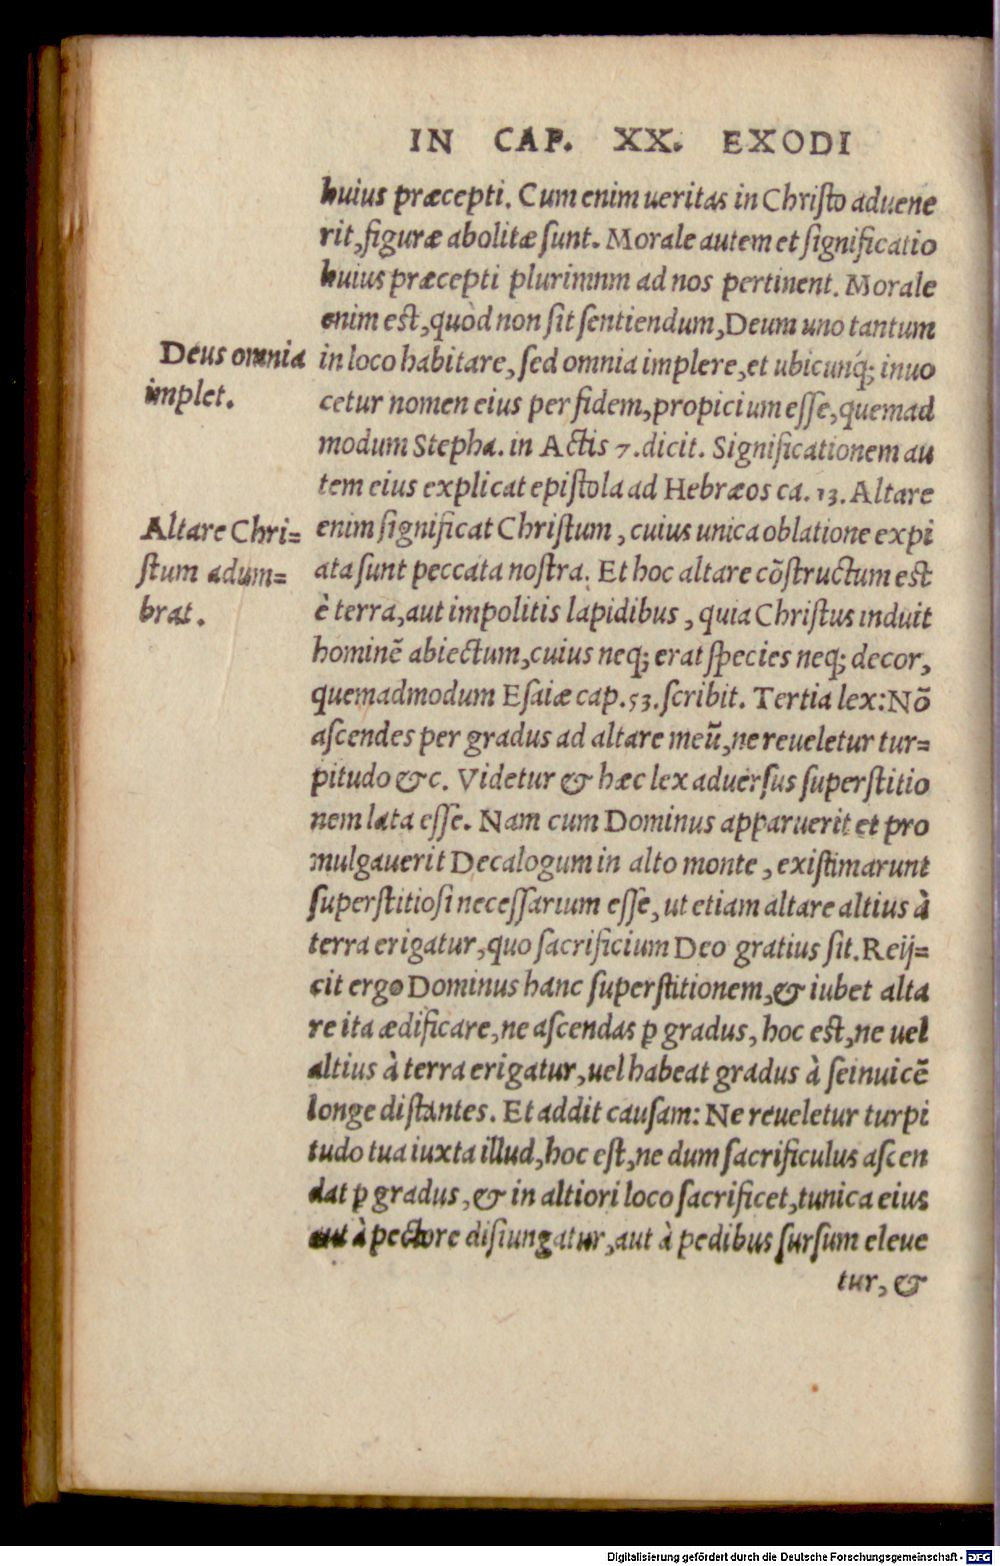 IN CAP. XX. EXODI
huius præcepti. Cum enim ueritas in Christo aduene
rit, figuræ abolitæ sunt. Morale autem et significatio
huius præcepti plurimnm ad nos pertinent. Morale
enim est, quòd non sit sentiendum, Deum uno tantum
Deus omnia
implet.
in loco habitare, sed omnia implere, et ubicunq́; inuo
cetur nomen eius per fidem, propicium esse, quemad
modum Stepha. in Actis 7. dicit. Significationem au
tem eius explicat epistola ad Hebræos ca. 13. Altare
Altare Chri=
stum adum=
brat.
enim significat Christum, cuius unica oblatione expi
ata sunt peccata nostra. Et hoc altare cõstructum est
è terra, aut impolitis lapidibus, quia Christus induit
hominẽ abiectum, cuius neq; erat species neq; decor,
quemadmodum Esaiæ cap. 53. scribit. Tertia lex: Nõ
ascendes per gradus ad altare meũ, ne reueletur tur=
pitudo &c. Videtur & hæc lex aduersus superstitio
nem lata esse. Nam cum Dominus apparuerit et pro
mulgauerit Decalogum in alto monte, existimarunt
superstitiosi necessarium esse, ut etiam altare altius à
terra erigatur, quo sacrificium Deo gratius sit. Reij=
cit ergo Dominus hanc superstitionem, & iubet alta
re ita ædificare, ne ascendas ꝑ gradus, hoc est, ne uel
altius à terra erigatur, uel habeat gradus à seinuicẽ
longe distantes. Et addit causam: Ne reueletur turpi
tudo tua iuxta illud, hoc est, ne dum sacrificulus ascen
dat ꝑ gradus, & in altiori loco sacrificet, tunica eius
aut à pectore disiungatur, aut à pedibus sursum eleue
tur, &
Digitalisierung gefördert durch die Deutsche Forschungsgemeinschaft - DFG